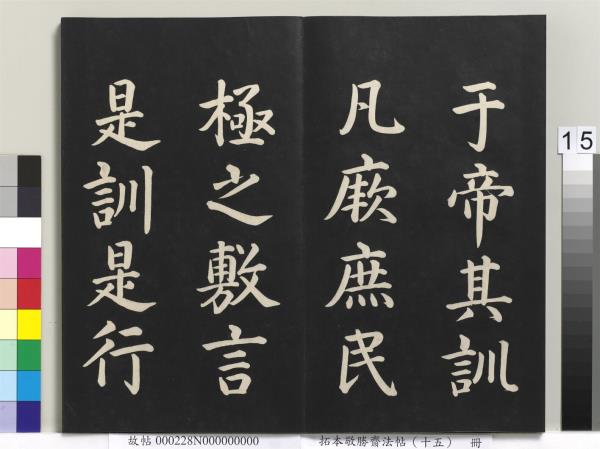 于帝其訓
凡厥庶民
極之敷言
是訓是行
15
故帖 000228N000000000
拓本敬勝齋法帖（十五） 冊